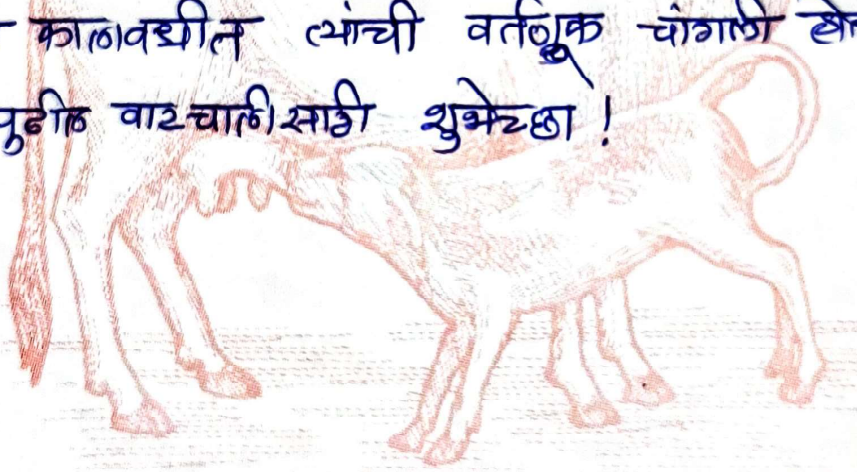 कालावधीत त्यांची वर्तणूक चांगली
पुढील वाटचालीसाठी शुभेच्छा !